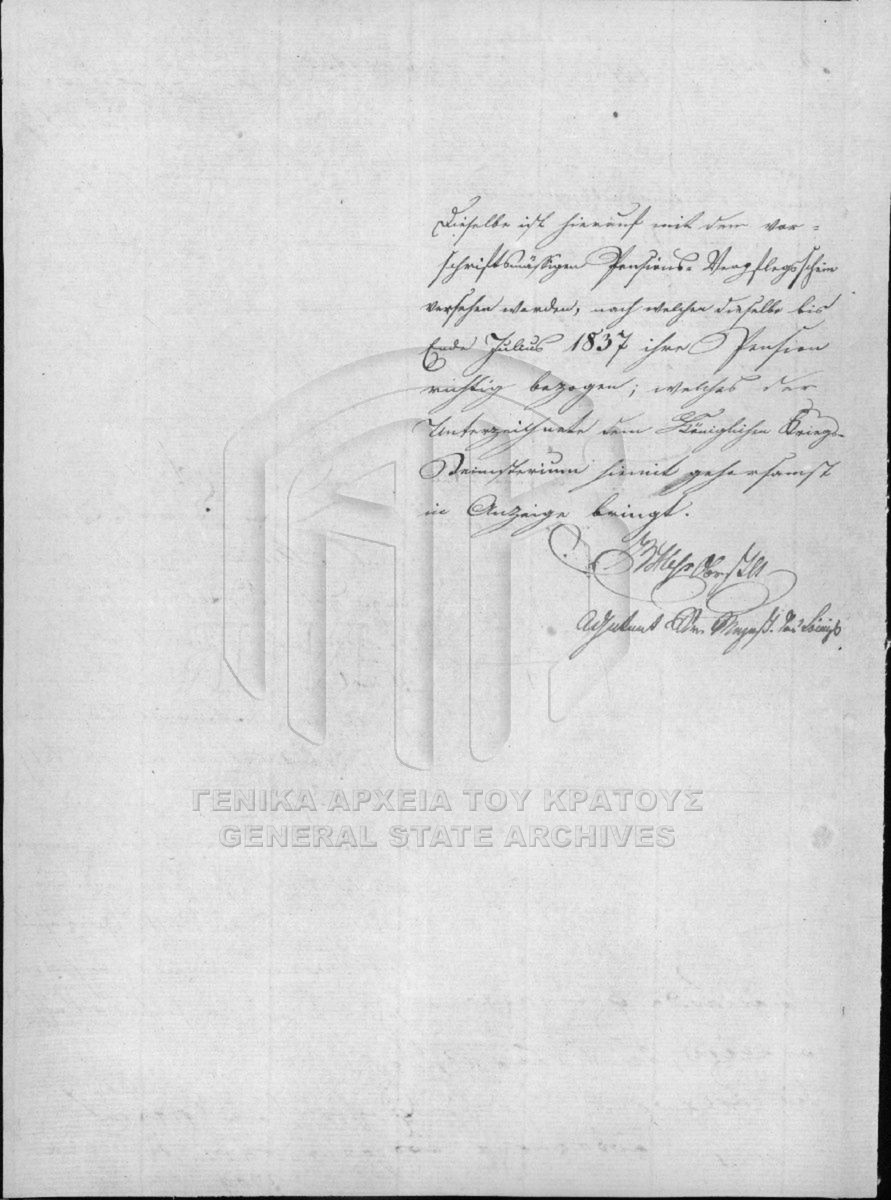 Dieselbe ist hierauf mit dem vor=
schriftsmässigen Pensions-Verpflegsschein
versehen worden, nach welchen dieselbe bis
Ende Julius 1837 ihre Pension
richtig bezogen; welches der
Unterzeichnete dem Königlichen Kriegs-
Ministerium hiemit gehorsamst
in Anzeige bringt.
Oberstlt
Adjutant Sr. Majest. des Königs
ΓΕΝΙΚΑ ΑΡΧΕΙΑ ΤΟΥ ΚΡΑΤΟΥΣ
GENERAL STATE ARCHIVES